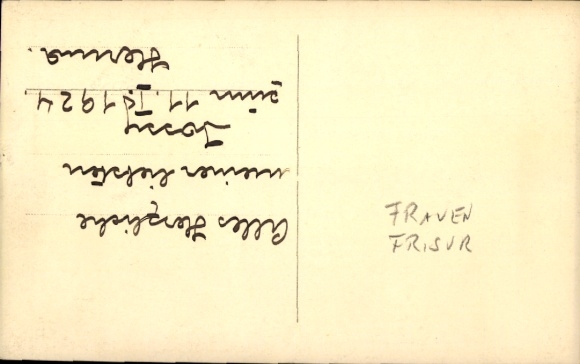 Alles Herzliche
meiner liebsten
Jossy
zum 11. IX 1924
Herma.
FRAUEN
FRISUR